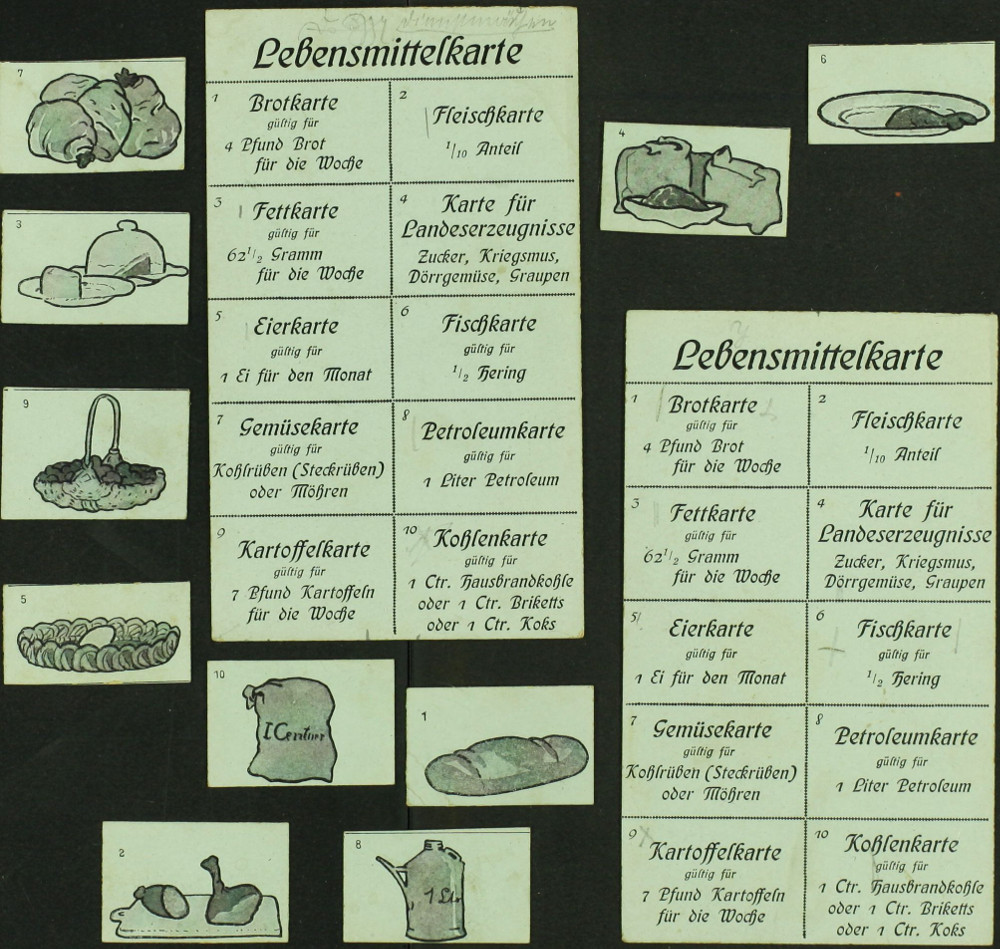 7
3
9
5
Lebensmittelkarte
1 Brotkarte
gültig für
4 Pfund Brot
für die Woche
2 Fleischkarte
1/10 Anteil
3 Fettkarte
gültig für
62 1/2 Gramm
für die Woche
4 Karte für
Landeserzeugnisse
Zucker, Kriegsmus,
Dörrgemüse, Graupen
5 Eierkarte
gültig für
1 Ei für den Monat
6 Fischkarte
gültig für
1/2 Hering
7 Gemüsekarte
gültig für
Kohlrüben (Steckrüben)
oder Möhren
8 Petroleumkarte
gültig für
1 Liter Petroleum
9 Kartoffelkarte
gültig für
7 Pfund Kartoffeln
für die Woche
10 Kohlenkarte
gültig für
1 Ctr. Hausbrandkohle
oder 1 Ctr. Briketts
oder 1 Ctr. Koks
4
6
Lebensmittelkarte
1 Brotkarte
gültig für
4 Pfund Brot
für die Woche
2 Fleischkarte
1/10 Anteil
3 Fettkarte
gültig für
62 1/2 Gramm
für die Woche
4 Karte für
Landeserzeugnisse
Zucker, Kriegsmus,
Dörrgemüse, Graupen
5 Eierkarte
gültig für
1 Ei für den Monat
6 Fischkarte
gültig für
1/2 Hering
7 Gemüsekarte
gültig für
Kohlrüben (Steckrüben)
oder Möhren
8 Petroleumkarte
gültig für
1 Liter Petroleum
9 Kartoffelkarte
gültig für
7 Pfund Kartoffeln
für die Woche
10 Kohlenkarte
gültig für
1 Ctr. Hausbrandkohle
oder 1 Ctr. Briketts
oder 1 Ctr. Koks
10
I Centner
1
2
8
1 Ltr.